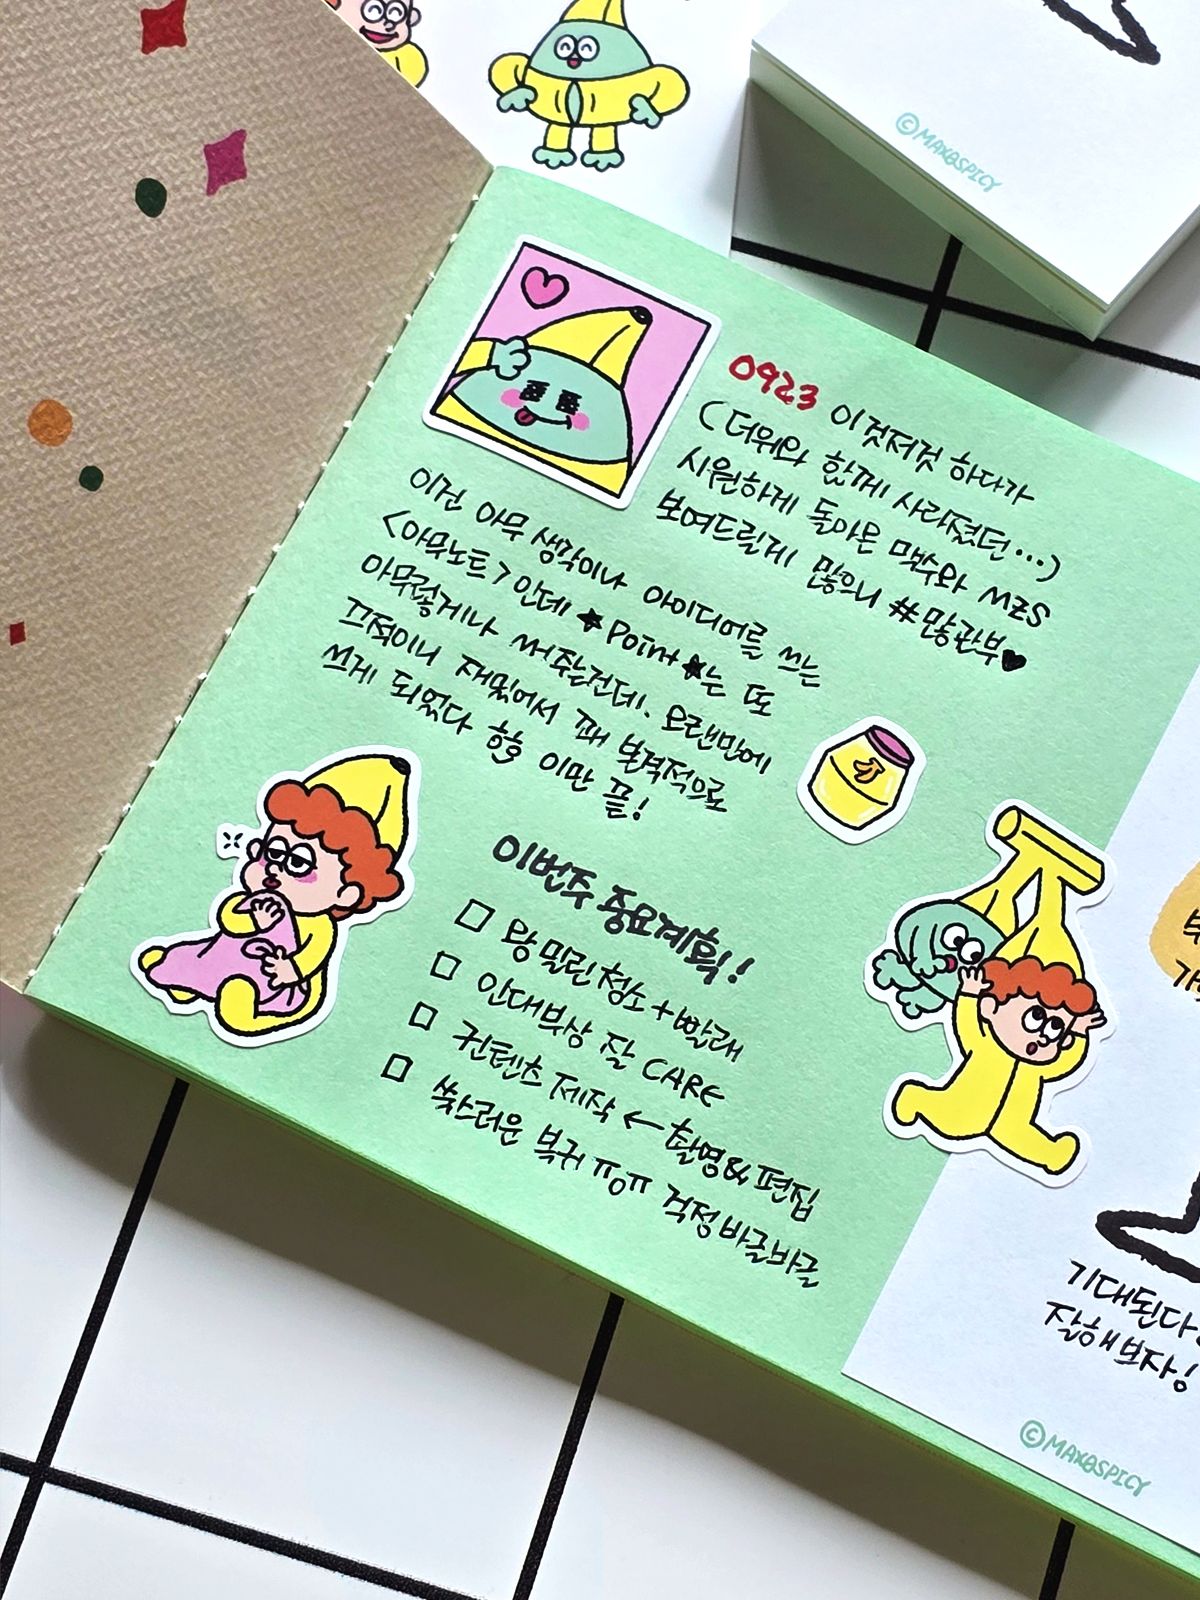 ©MAX&SPICY
0923 이것저것 하다가
(더위와 함께 사라졌던...)
시원하게 돌아온 맥수와 MZS
보여드릴게 많으니 #많관부♥
이건 아무 생각이나 아이디어를 쓰는
<아무노트>인데 ★Point★는 또
아무렇게나 써주는건데. 오랜만에
끄적이니 재밌어서 꽤 본격적으로
쓰게 되었다 홓홓 이만 끝!
이번주 중요계획!
□ 왕 밀린 청소+빨래
□ 인대부상 잘 CARE
□ 컨텐츠 제작 ← 촬영&편집
□ 쑥스러운 복귀 ㅠㅇㅠ 걱정 바글바글
기대된다
잘해보자!
©MAX&SPICY